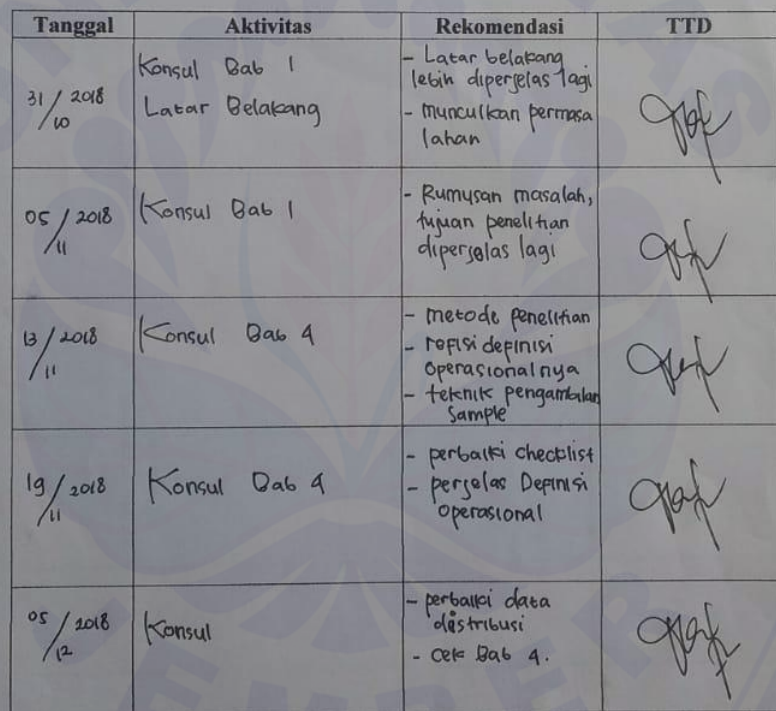 Tanggal Aktivitas Rekomendasi TTD
31/10 2018
Konsul Bab 1
Latar Belakang
- Latar belakang
lebih diperjelas lagi
- munculkan permasa
lahan
05/11 2018
Konsul Bab 1
- Rumusan masalah,
tujuan penelitian
diperjelas lagi
13/11 2018
Konsul Bab 4
- metode penelitian
- refisi definisi
operasionalnya
- teknik pengambilan
sample
19/11 2018
Konsul Bab 4
- perbaiki checklist
- perjelas Definisi
operasional
05/12 2018
Konsul
- perbaiki data
distribusi
- cek Bab 4.